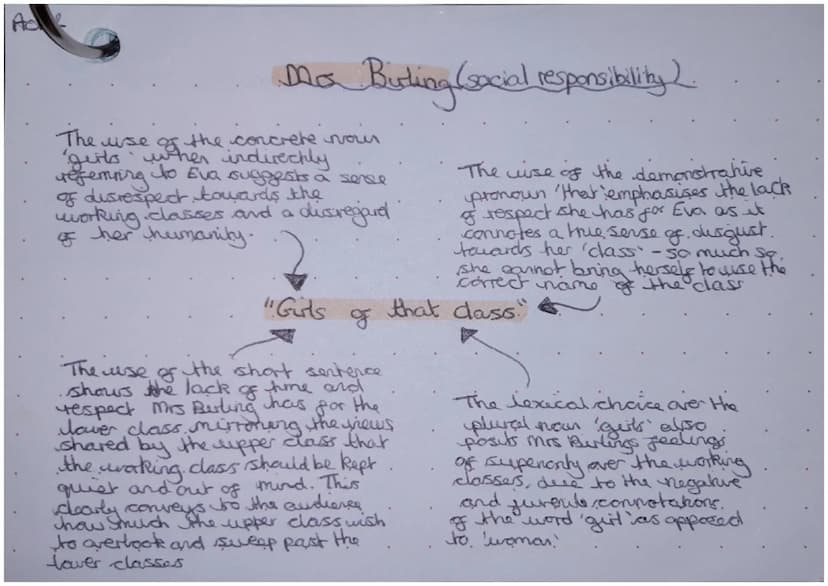 Mrs Birling (social responsibility)
The use of the concrete noun
'girls' when indirectly
referring to Eva suggests a sense
of disrespect towards the
working classes and a disregard
of her humanity.
The use of the demonstrative
pronoun 'that' emphasises the lack
of respect she has for Eva as it
connotes a true sense of disgust
towards her 'class' - so much so
she cannot bring herself to use the
correct name of the class
"Girls of that class"
The use of the short sentence
shows the lack of time and
respect Mrs Birling has for the
lower class, mirroring the views
shared by the upper class that
the working class should be kept
quiet and out of mind. This
clearly conveys to the audience
how much the upper class wish
to overlook and sweep past the
lower classes
The lexical choice over the
plural noun 'girls' also
posits Mrs Birlings feelings
of superiority over the working
classes, due to the negative
and juvenile connotations
of the word 'girl' as opposed
to 'woman'